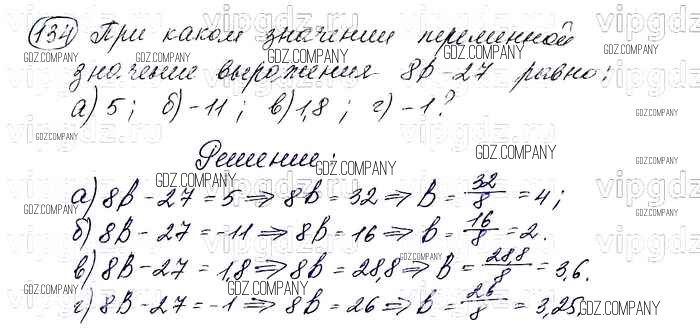 134 При каком значении переменной
значение выражения 8b-27 равно:
а) 5; б) -11; в) 1,8; г) -1?
Решение:
а) 8b-27=5 ⇒ 8b=32 ⇒ b=32/8=4;
б) 8b-27=-11 ⇒ 8b=16 ⇒ b=16/8=2.
в) 8b-27=1,8 ⇒ 8b=28,8 ⇒ b=28,8/8=3,6.
г) 8b-27=-1 ⇒ 8b=26 ⇒ b=26/8=3,25